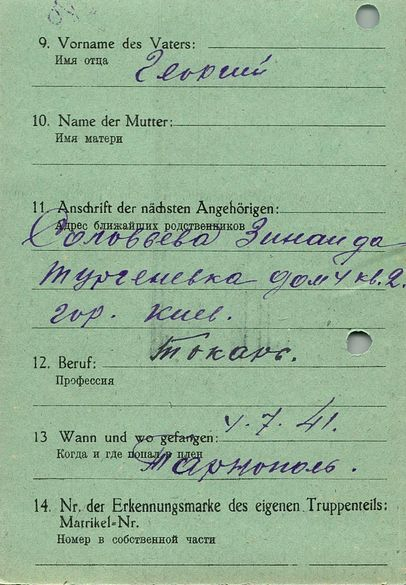 9. Vorname des Vaters:
Имя отца
Георгий
10. Name der Mutter:
Имя матери
11. Anschrift der nächsten Angehörigen:
Адрес ближайших родственников
Соловьева Зинаида
Тургеневка дом 4 кв. 2.
гор. Киев.
12. Beruf: Токарь.
Профессия
13 Wann und wo gefangen: 4. 7. 41.
Когда и где попал в плен
Тарнополь.
14. Nr. der Erkennungsmarke des eigenen Truppenteils:
Matrikel=Nr.
Номер в собственной части